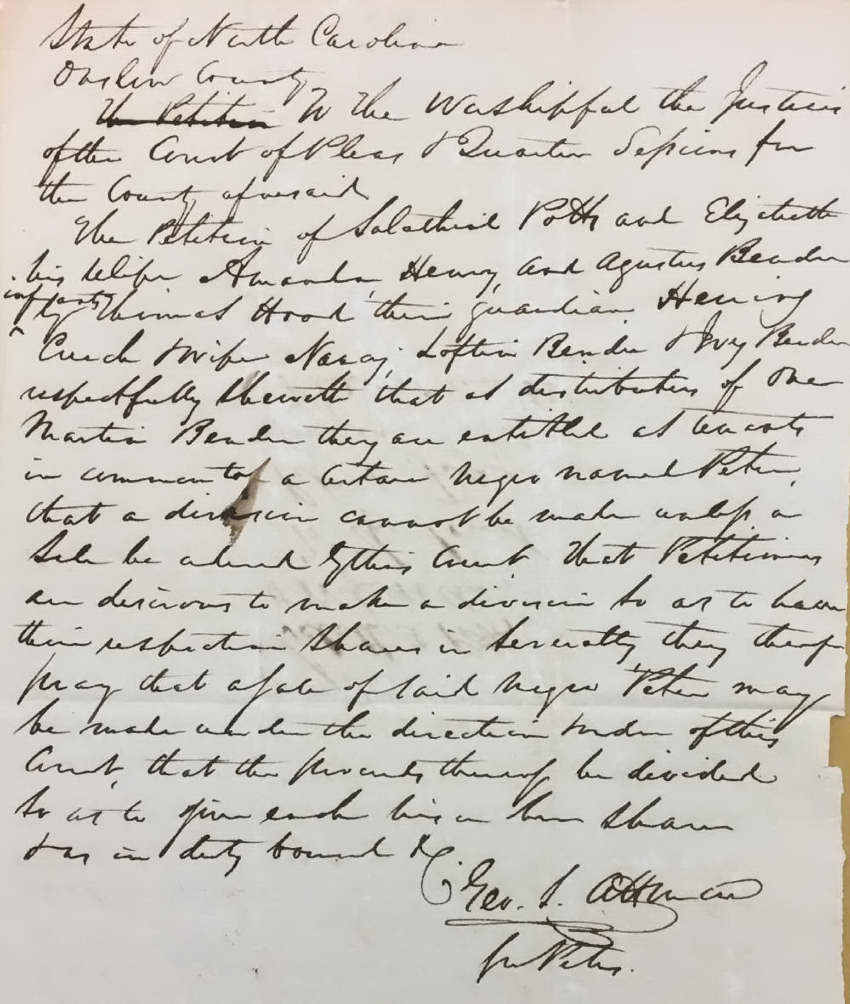 State of North Carolina
Onslow County
The Petition To the Worshipful the Justices
of the Court of Pleas & Quarter Sessions for
the County aforesaid
The Petition of Salathiel Potts and Elizabeth
his Wife Amanda Henry, and Agustus Bender
infants
by Thomas Hood their guardian Hening
& wife Nancy, Loftin Bender & Ivy Bender
respectfully sheweth that as distributees of one
Martin Bender they are entitled as tenants
in common to a certain negro named Peter,
that a division cannot be made unless a
Sale be ordered by this Court that Petitioners
are desirous to make a division so as to have
their respective Shares in Severalty they therefore
pray that a sale of said negro Peter may
be made under the direction & order of this
Court, that the proceeds thereof be divided
so as to give each his or her share
& as in duty bound &c
Geo. S. Attmore
for Petrs.